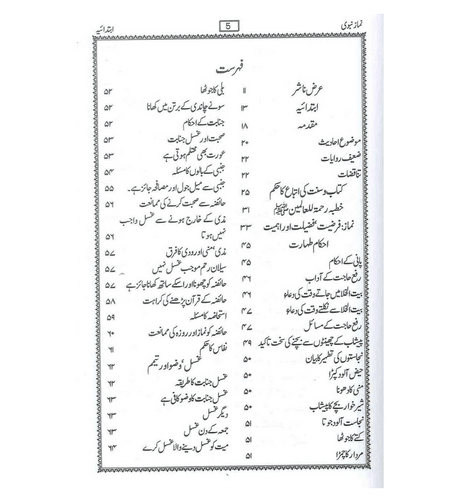 نماز نبوی
5
ابتدائیہ
فہرست
عرض ناشر ۱۱
ابتدائیہ ۱۳
مقدمہ ۱۸
موضوع احادیث ۲۰
ضعیف روایات ۲۲
تناقضات ۲۲
کتاب و سنت کی اتباع کا حکم ۲۵
خطبہ رحمۃ للعالمین ﷺ ۳۱
نماز: فرضیت، فضیلت اور اہمیت ۳۳
احکام طہارت ۴۵
پانی کے احکام ۴۵
رفع حاجت کے آداب ۴۶
بیت الخلا میں جاتے وقت کی دعاء ۴۶
بیت الخلا سے نکلتے وقت کی دعاء ۴۷
رفع حاجت کے مسائل ۴۷
پیشاب کے چھینٹوں سے بچنے کی سخت تاکید ۴۹
نجاستوں کی تطہیر کا بیان ۵۰
حیض آلود کپڑا ۵۰
منی کا دھونا ۵۰
شیر خوار بچے کا پیشاب ۵۰
نجاست آلود جوتا ۵۱
کتے کا جوٹھا ۵۱
مردار کا چمڑا ۵۱
بلی کا جوٹھا ۵۲
سونے چاندی کے برتن میں کھانا ۵۲
جنابت کے احکام ۵۲
صحبت اور غسل جنابت ۵۳
عورت بھی محتلم ہوتی ہے ۵۳
جنبی کے بالوں کا مسئلہ ۵۴
جنبی سے میل جول اور مصافحہ جائز ہے۔ ۵۵
حائضہ سے صحبت کرنے کی ممانعت ۵۵
مذی کے خارج ہونے سے غسل واجب
نہیں ہوتا ۵۶
مذی، منی اور ودی کا فرق ۵۷
سیلان رحم موجب غسل نہیں ۵۷
حائضہ کو چھونا اور اسکے ساتھ کھانا جائز ہے ۵۷
حائضہ کے قرآن پڑھنے کی کراہت ۵۸
استحاضہ کا مسئلہ ۵۹
حائضہ کو نماز اور روزہ کی ممانعت ۶۰
نفاس کا حکم ۶۱
غسل، وضو اور تیمم
غسل جنابت کا طریقہ ۶۲
غسل جنابت کا وضو کافی ہے ۶۳
دیگر غسل ۶۳
جمعہ کے دن غسل ۶۳
میت کو غسل دینے والا غسل کرے ۶۴